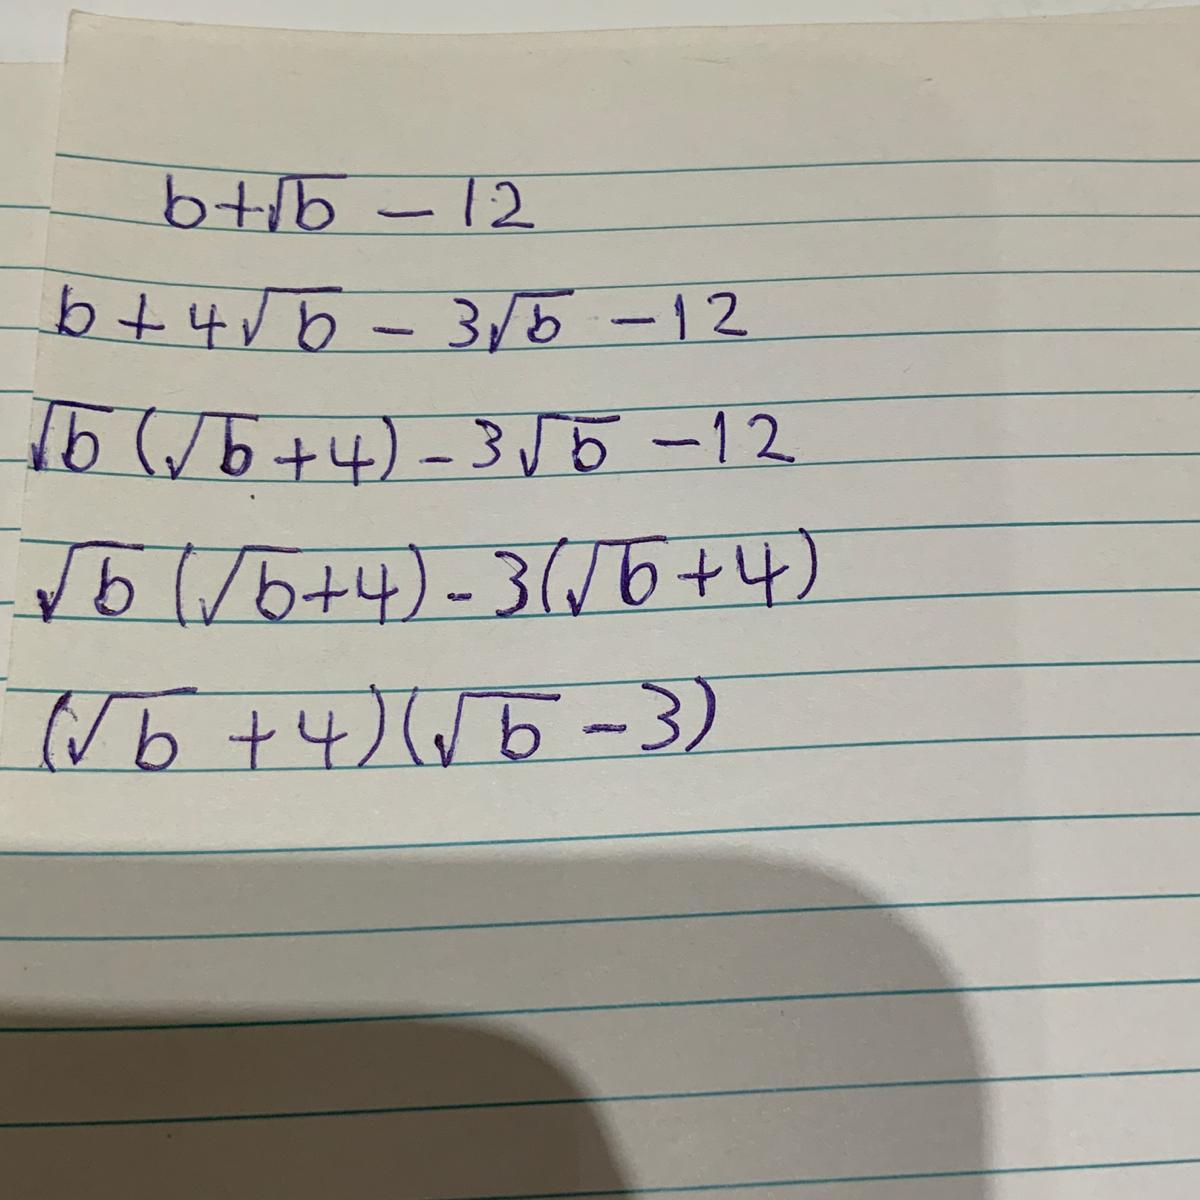 b+√b − 12
b + 4√b − 3√b − 12
√b (√b + 4) − 3√b − 12
√b (√b+4) − 3(√b + 4)
(√b + 4)(√b − 3)